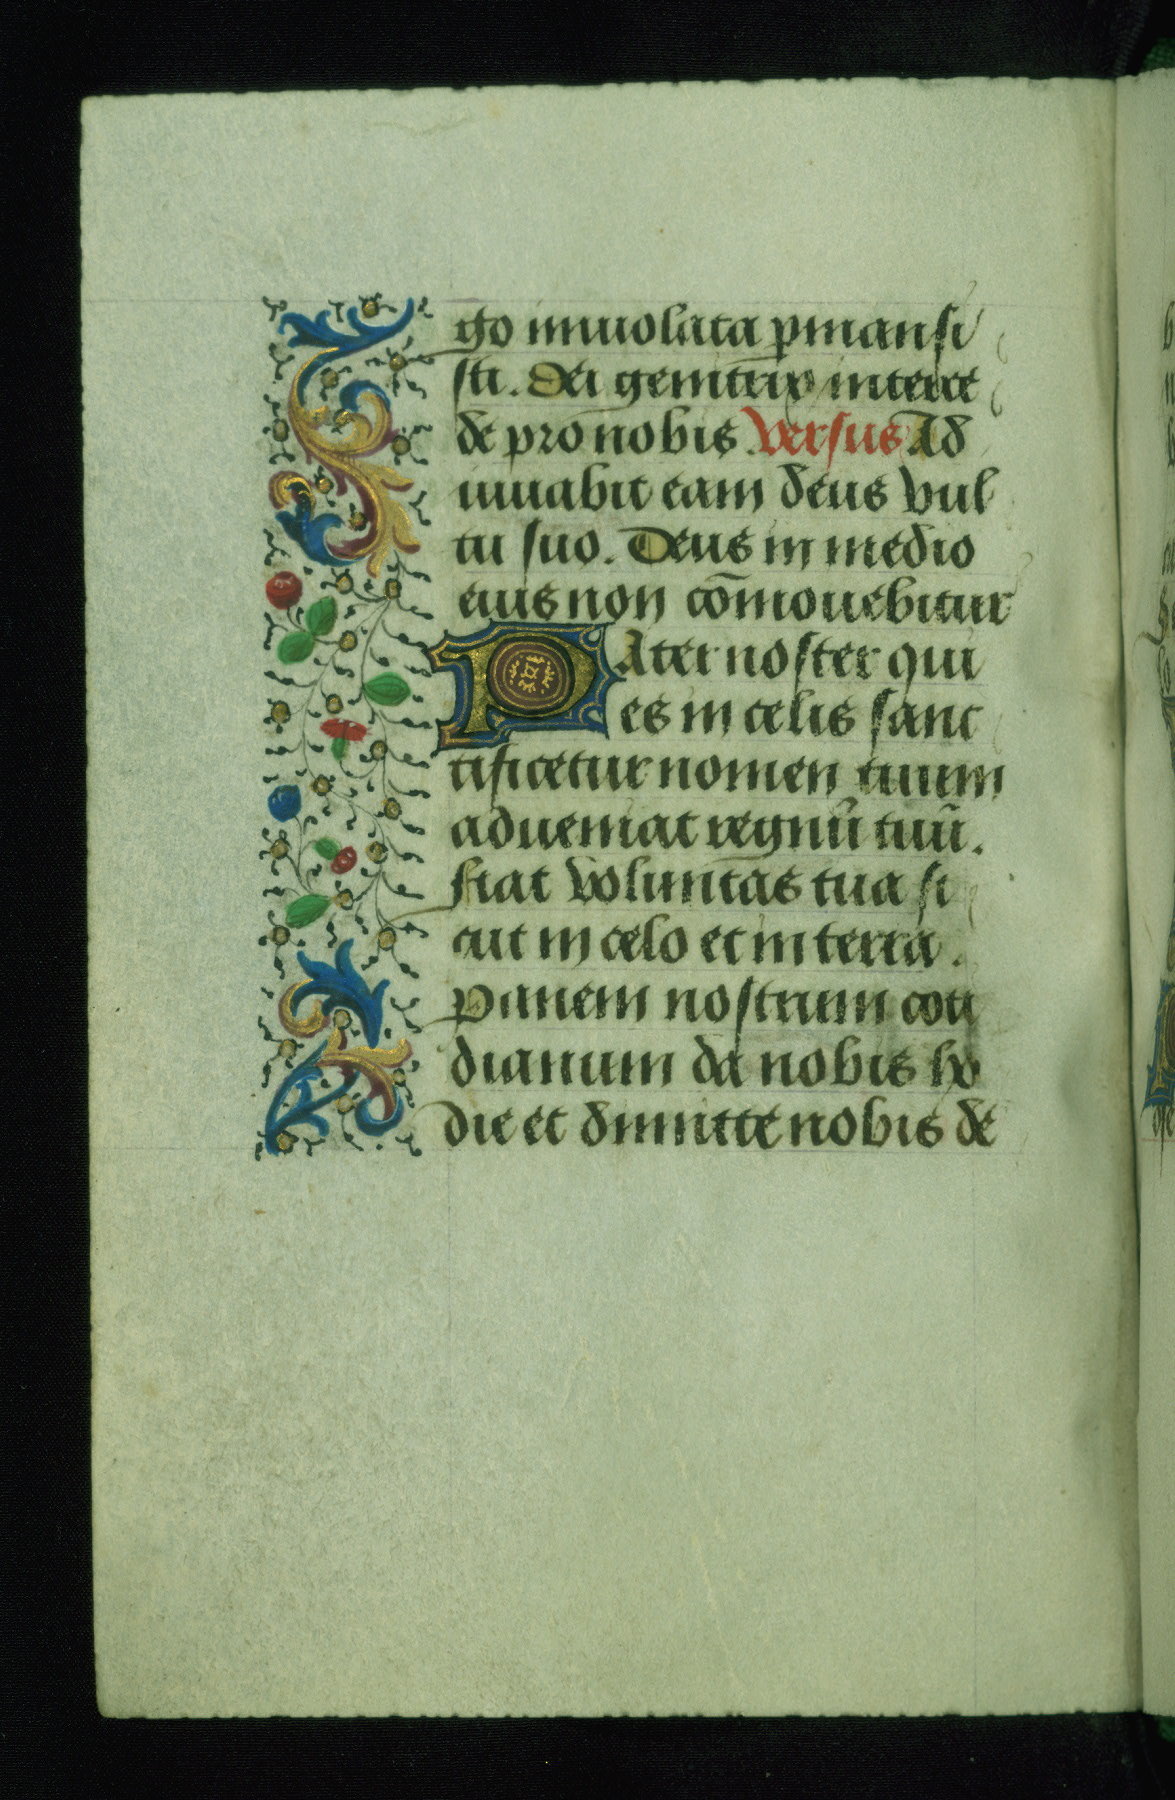 go inuiolata pmansi
sti. Dei genitrix interce
de pro nobis. Versus Ad
iuuabit eam deus vul
tu suo. Deus in medio
eius non cōmouebitur
Pater noster qui
es in celis sanc
tificetur nomen tuum
adueniat regnū tuū.
fiat voluntas tua si
cut in celo et in terra.
panem nostrum coti
dianum da nobis ho
die et dimitte nobis de